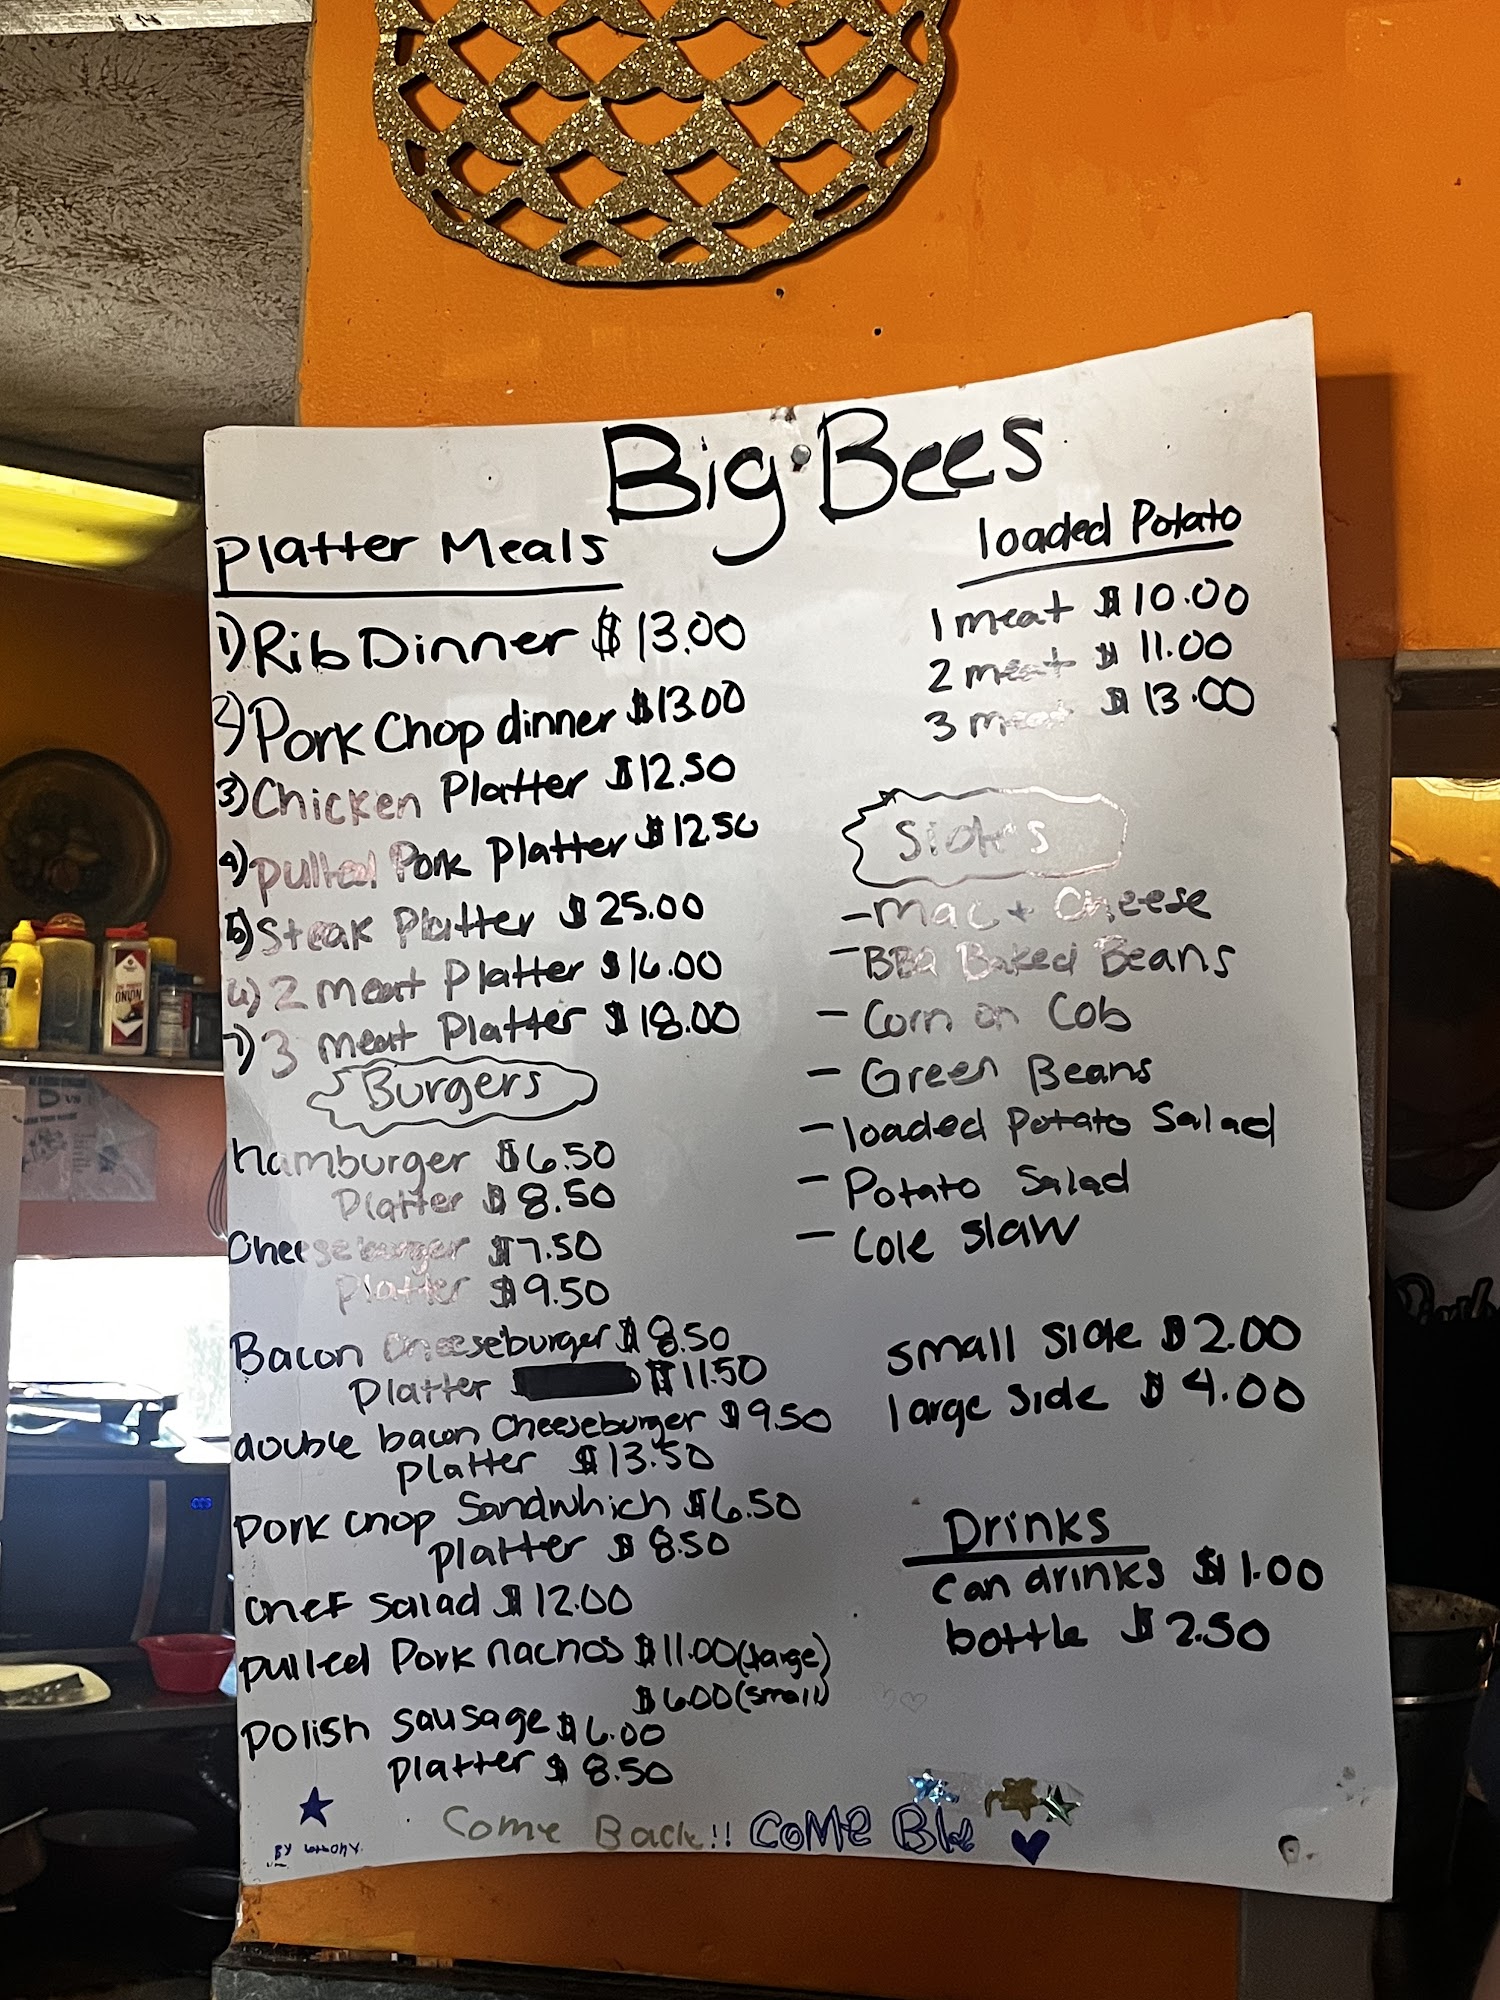 Big Bees
Platter Meals
1) Rib Dinner $13.00
2) Pork Chop dinner $13.00
3) Chicken Platter $12.50
4) Pulled Pork Platter $12.50
5) Steak Platter $25.00
6) 2 meat Platter $16.00
7) 3 meat Platter $18.00
Burgers
hamburger $6.50
Platter $8.50
Cheeseburger $7.50
Platter $9.50
Bacon Cheeseburger $8.50
Platter $11.50
double bacon Cheeseburger $9.50
Platter $13.50
Pork chop Sandwhich $6.50
Platter $8.50
chef Salad $12.00
Pulled Pork nachos $11.00 (large)
$6.00 (small)
Polish Sausage $6.00
Platter $8.50
loaded Potato
1 meat $10.00
2 meat $11.00
3 meat $13.00
Sides
- Mac + Cheese
- BBQ Baked Beans
- Corn on Cob
- Green Beans
- loaded Potato Salad
- Potato Salad
- Cole Slaw
small Side $2.00
large Side $4.00
Drinks
can drinks $1.00
bottle $2.50
Come Back!! COME
BY
ONION